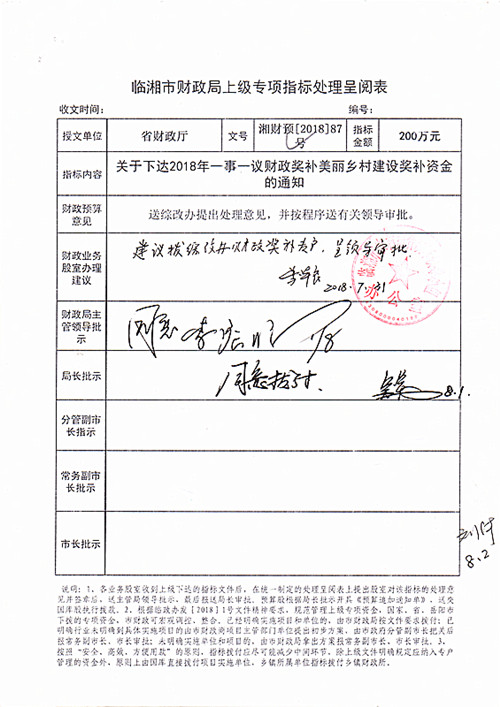 临湘市财政局上级专项指标处理呈阅表
收文时间： 编号：
授文单位 省财政厅 文号 湘财预[2018]87号 指标金额 200万元
指标内容 关于下达2018年一事一议财政奖补美丽乡村建设奖补资金的通知
财政预算意见 送综改办提出处理意见，并按程序送有关领导审批。
财政业务股室办理建议 建议拨综改办财政奖补专户，呈领导审批
2018.7.31
办公
财政局主管领导批示 同意
局长批示 同意拨付. 8.1.
分管副市长指示
常务副市长批示
市长批示
8.2
说明：1、各业务股室收到上级下达的指标文件后，在统一制定的处理呈阅表上提出股室对该指标的处理意
见并签章后，送主管局领导批示，最后报送局长审批，预算股根据局长批示开具《预算追加通知单》，送交
国库股执行拨款。2、根据临政办发[2018]1号文件精神要求，规范管理上级专项资金，国家、省、岳阳市
下拨的专项资金，市财政可宏观调控、整合。已经明确实施项目和单位的，由市财政局按文件要求拨付；已
明确行业未明确到具体实施项目的由市财政商项目主管部门单位提出初步方案，由市政府分管副市长把关后
报常务副市长、市长审批；未明确实施单位和项目的，由市财政局拿出方案报常务副市长、市长审批。3、
按照“安全、高效、方便用款”的原则，指标拨付应尽可能减少中间环节，除上级文件明确规定应纳入专户
管理的资金外，原则上由国库直接拨付项目实施单位，乡镇所属单位指标拨付乡镇财政所。